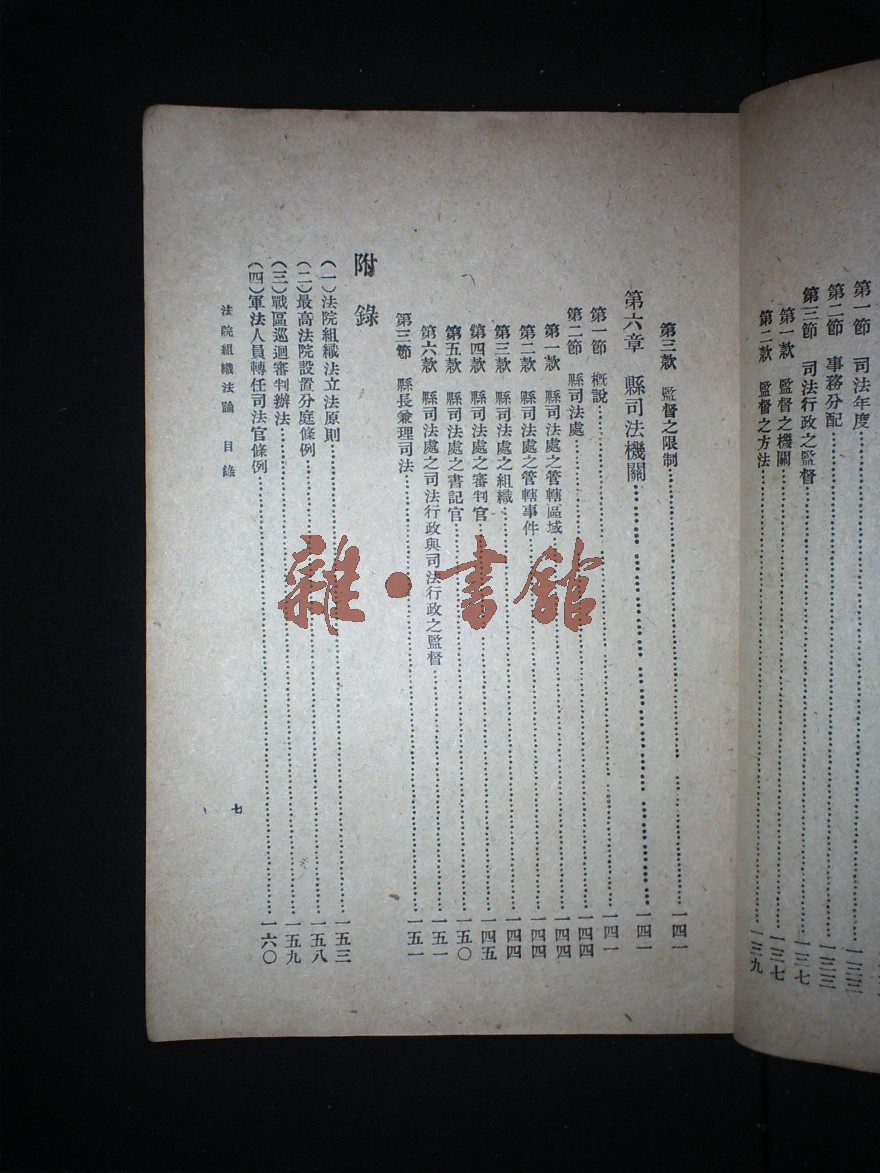 第一節　司法年度……一三三
第二節　事務分配……一三三
第三節　司法行政之監督……一三七
第一款　監督之機關……一三七
第二款　監督之方法……一三九
第三款　監督之限制……一四一
第六章　縣司法機關……一四一
第一節　概說……一四一
第二節　縣司法處……一四四
第一款　縣司法處之管轄區域……一四四
第二款　縣司法處之管轄事件……一四四
第三款　縣司法處之組織……一四四
第四款　縣司法處之審判官……一四五
第五款　縣司法處之書記官……一五〇
第六款　縣司法處之司法行政與司法行政之監督……一五一
第三節　縣長兼理司法……一五一
附錄
（一）法院組織法立法原則……一五三
（二）最高法院設置分庭條例……一五八
（三）戰區巡迴審判辦法……一五九
（四）軍法人員轉任司法官條例……一六〇
法院組織法論　目錄
七
雜·書館